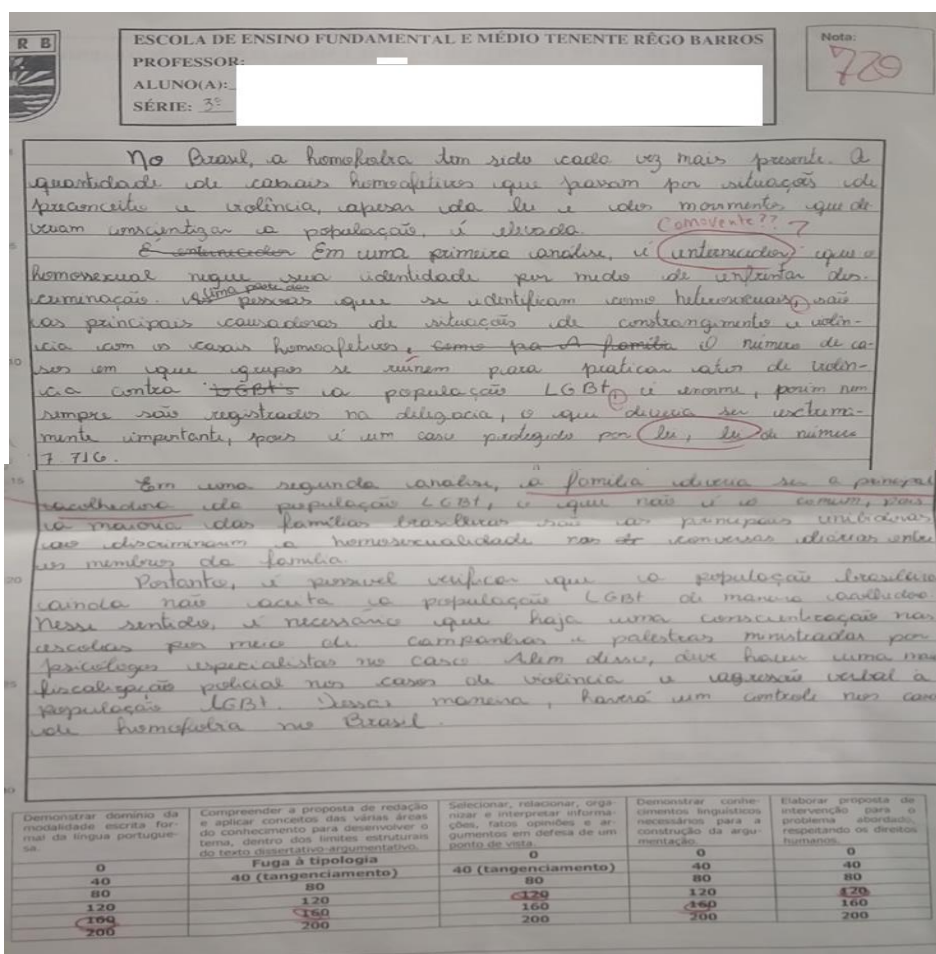 R B
ESCOLA DE ENSINO FUNDAMENTAL E MÉDIO TENENTE RÊGO BARROS
PROFESSOR:
ALUNO(A):
SÉRIE: 3º
Nota:
720
No Brasil, a homofobia tem sido cada vez mais presente. A
quantidade de casais homoafetivos que passam por situações de
preconceito e violência, apesar da lei e dos movimentos que de
veriam conscientizar a população, é elevada.
Comovente??
5
É enternecedor Em uma primeira análise, é enternecedor que o
homosexual negue sua identidade por medo de enfrentar des-
criminação. Uma parte das pessoas que se identificam como heterosexuais, são
as principais causadoras de situações de constrangimento e violên-
cia com os casais homoafetivos, como pa A família O número de ca-
10
sos em que grupos se reúnem para praticar atos de violên-
cia contra LGBt's a população LGBt, é enorme, porém nem
sempre são registrados na delegacia, o que deveria ser extremi-
mente importante, pois é um caso protegido por lei, lei de número
7.716.
15
Em uma segunda análise, a família deveria ser a principal
acolhedora da população LGBt, o que não é o comum, pois
a maioria das famílias brasileiras são as principais
ao discriminarem a homosexualidade nas conversas diárias entre
os membros da família.
20
Portanto, é possível verificar que a população brasileira
ainda não aceita a população LGBt de maneira acolhedora.
Nesse sentido, é necessário que haja uma conscientização nas
escolas por meio de campanhas e palestras ministradas por
psicólogos especialistas no caso. Alem disso, deve haver uma
25
fiscalização policial nos casos de violência e agressão verbal à
população LGBt. Dessa maneira, haverá um controle nos caso
de homofobia no Brasil.
30
Demonstrar domínio da modalidade escrita for-
mal da língua portugue-
sa.
0
40
80
120
160
200
Compreender a proposta de redação
e aplicar conceitos das várias áreas
do conhecimento para desenvolver o
tema, dentro dos limites estruturais
do texto dissertativo-argumentativo.
Fuga à tipologia
40 (tangenciamento)
80
120
160
200
Selecionar, relacionar, orga-
nizar e interpretar informa-
ções, fatos opiniões e ar-
gumentos em defesa de um
ponto de vista.
0
40 (tangenciamento)
80
120
160
200
Demonstrar conhe-
cimentos linguísticos
necessários para a
construção da argu-
mentação.
0
40
80
120
160
200
Elaborar proposta de
intervenção para o
problema abordado,
respeitando os direitos
humanos.
0
40
80
120
160
200